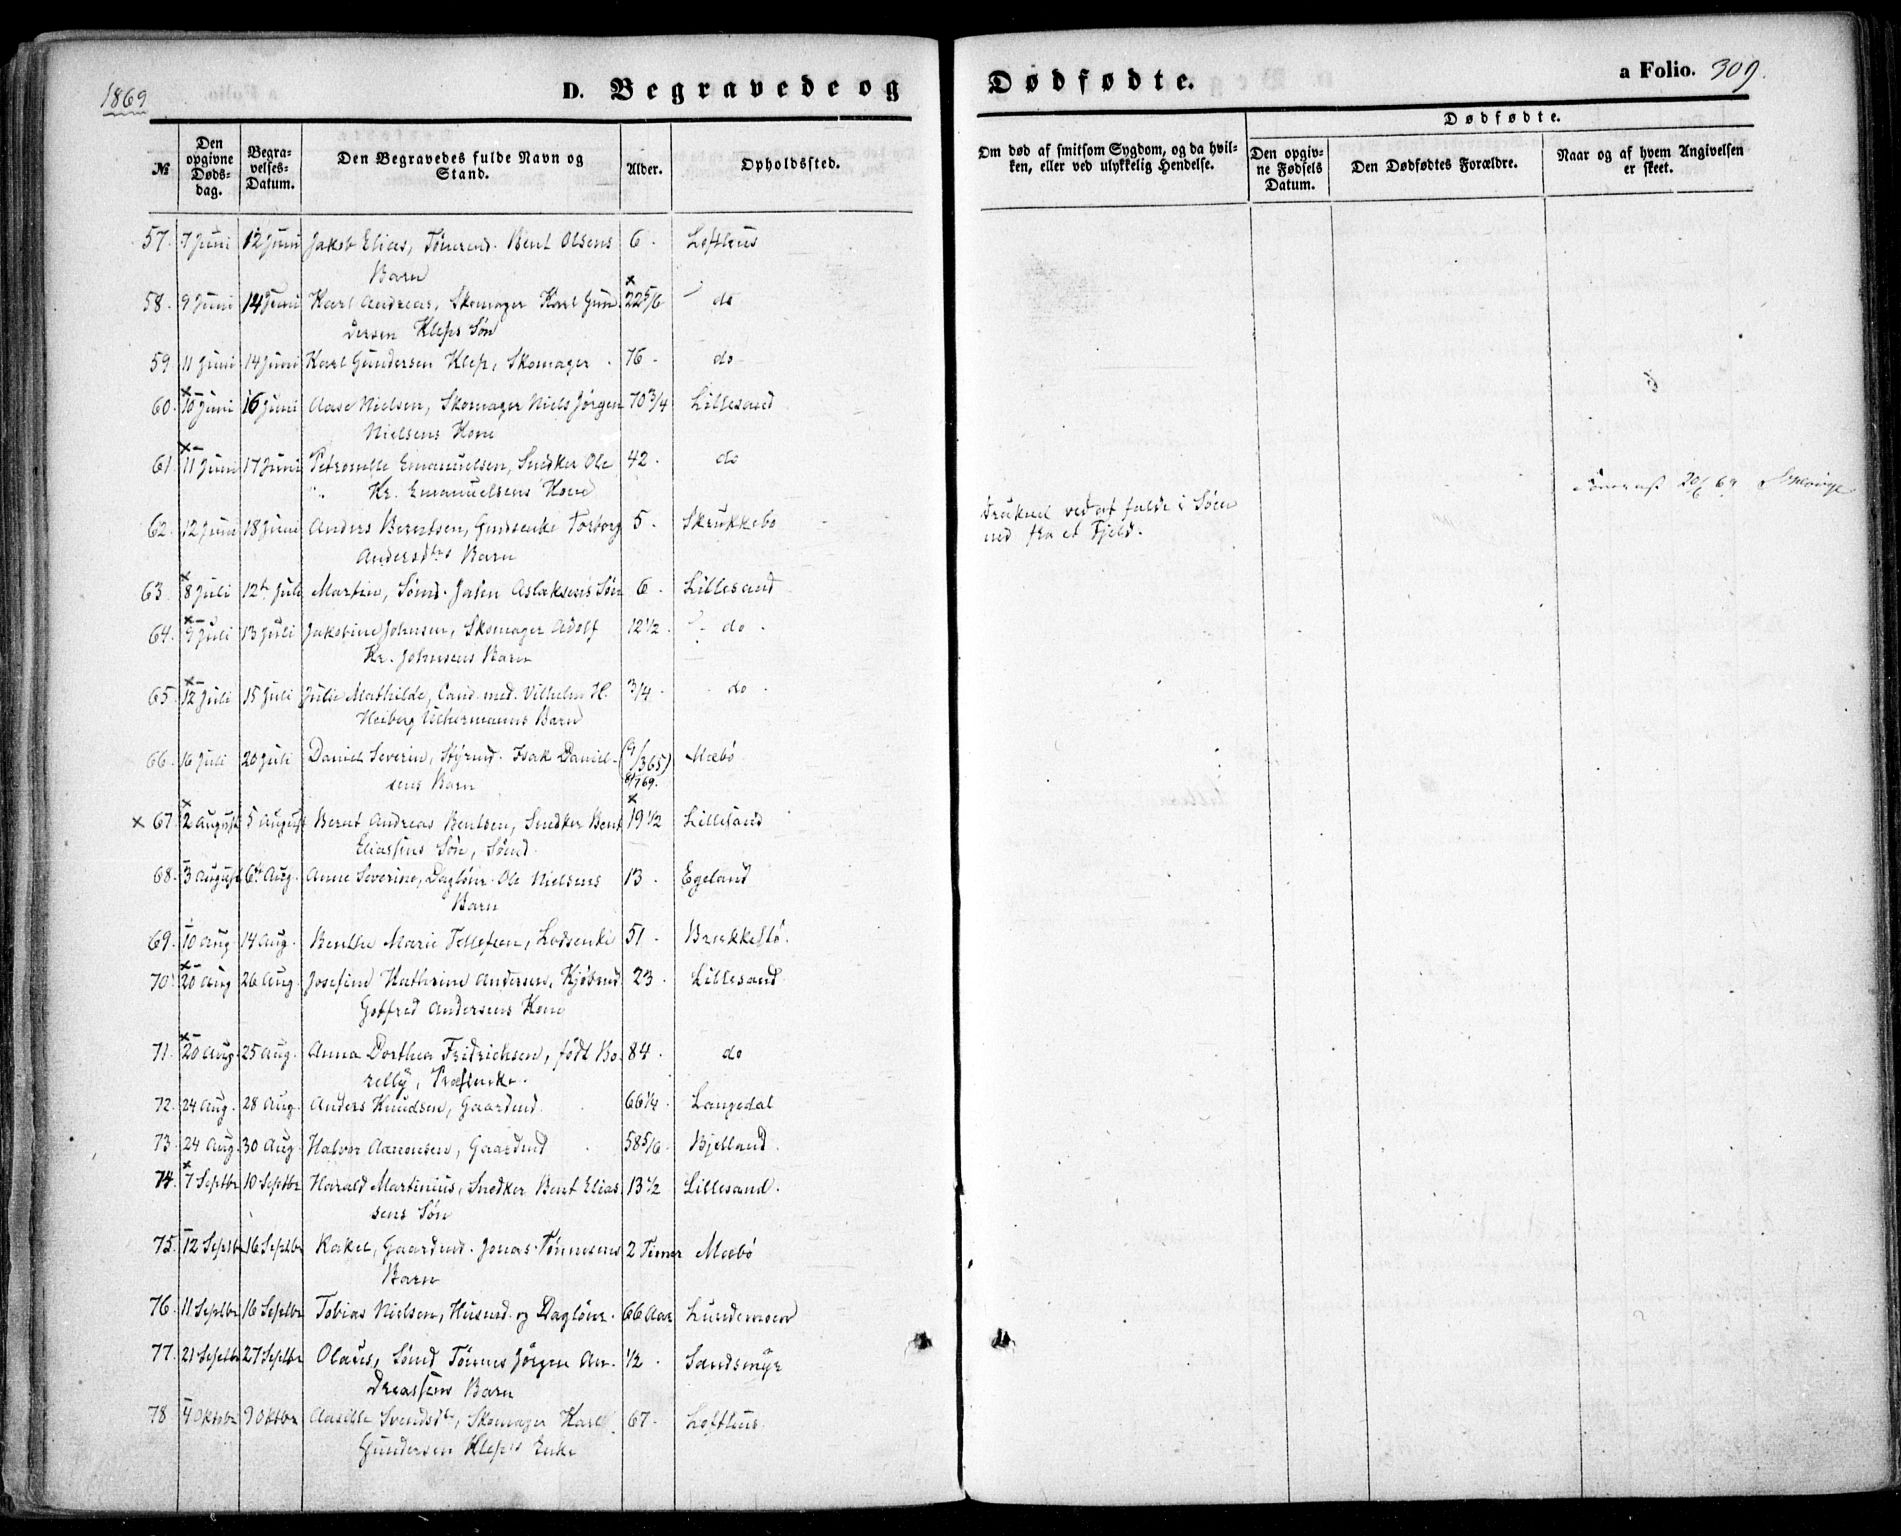 1869
D. Begravede og Dødfødte.
a Folio. 309.
№ Den opgivne Døds-dag. Begra-velses-Datum. Den Begravedes fulde Navn og Stand. Alder. Opholdssted. Om død af smitsom Sygdom, og da hvil-ken, eller ved ulykkelig Hendelse. Dødfødte. Den opgiv-ne Fødsels Datum. Den Dødfødtes Forældre. Naar og af hvem Angivelsen er skeet.
57. 7 Juni 12 Juni Jakob Elias, Tømrmd. Bent Olsens 6. Lofthus
Barn
58. 9 Juni 14 Juni Karl Andreas, Skomager Karl Gun- 22 5/6 do
dersen Kleps Søn
59 11 Juni 14 Juni Karl Gundersen Klep, Skomager. 76. do
60. 10 Juni 16 Juni Aase Nielsen, Skomager Niels Jørgen 70 3/4 Lillesand
Nielsens Kone
61. 11 Juni 17 Juni Petronelle Emanuelsen, Snedker Ole 42. do
Kr. Emanuelsens Kone
62. 12 Juni 18 Juni Anders Berntsen, Torborg 5. Skrukkebo druknet ved at falde i Søen
Andersdtrs Barn ned fra et Fjeld.
63. 8 Juli 12te Juli Martin, Sømd. John Aslaksens Søn 6. Lillesand
64. 9 Juli 13 Juli Jakobine Johnsen, Skomager Adolf 12 1/2 do.
Kr. Johnsens Barn
65. 12 Juli 15 Juli Julie Mathilde, Cand. med. Vilhelm H. 3/4 do.
Heiberg Uchermanns Barn
66. 16 Juli 20 Juli Daniel Severin, Styrmd. Isak Daniel- (9/365) Mæbø
sens Barn
x 67. 2 August 5 August Bernt Andreas Bentsen, Snedker Bent 19 1/2 Lillesand
Eliassens Søn, Sømd.
68. 3 August 6te Aug. Anne Severine, Dagløn. Ole Nielsens 13. Egeland
Barn
69. 10 Aug 14 Aug. Benthe Marie Tellefsen, Lodsenke 51. Brækkestø.
70. 20 Aug 26 Aug. Josefine Kathrine Andersen, Kjøbmd. 23. Lillesand
Gotfred Andersens Kone
71. 20 Aug. 25 Aug. Anna Dorthea Fridrichsen, født Bo- 84. do
relly, Præstenke.
72. 24 Aug. 28 Aug. Anders Knudsen, Gaardmd. 66 1/4 Langedal
73. 24 Aug. 30 Aug. Halvor Aanonsen, Gaardmd 58 5/6. Bjelland.
74. 7 Septbr 10 Septbr Harald Martinius, Snedker Bent Elias- 13 1/2 Lillesand.
sens Søn
75. 12 Septbr 16 Septbr Rakel, Gaardmd. Jonas Tønnesens 2 Timer Mæbø
Barn
76. 11 Septbr 16 Septbr Tobias Nielsen, Husmd. og Dagløn. 66 Aar Lundemoen
77. 21 Septbr 27 Septbr Olaus, Sømd Tønnes Jørgen An- 1/2. Sandsmyr
dreassens Barn
78 4 Oktobr 9 Oktbr Aasille Svendsdtr, Skomager Karl 67. Lofthus.
Gundersen Kleps Enke